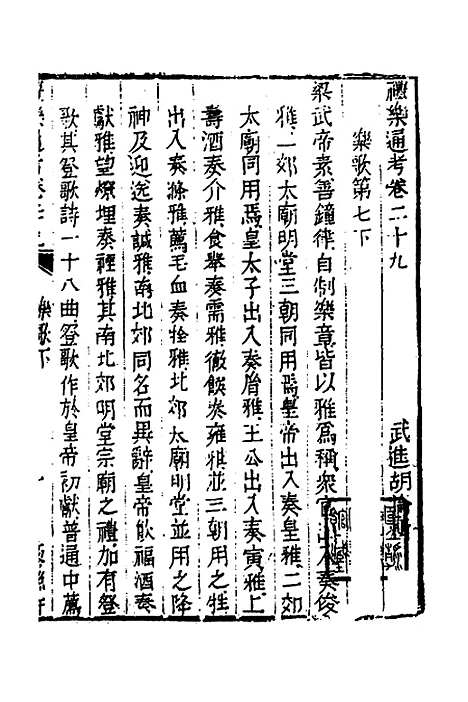 禮樂通考卷二十九
武進胡
樂歌第七下
梁武帝素善鐘律自制樂章皆以雅爲稱衆官出入奏俊
雅二郊太廟明堂三朝同用焉皇帝出入奏皇雅二郊
太廟同用焉皇太子出入奏胤雅王公出入奏寅雅上
壽酒奏介雅食舉奏需雅徹饌奏雍雅並三朝用之牲
出入奏滌雅薦毛血奏牷雅北郊太廟明堂並用之降
神及迎送奏諴雅南北郊同名而異辭皇帝飲福酒奏
獻雅望燎埋奏禋雅其南北郊明堂宗廟之禮加有登
歌其登歌詩一十八曲登歌作於皇帝初獻普通中薦
樂歌下